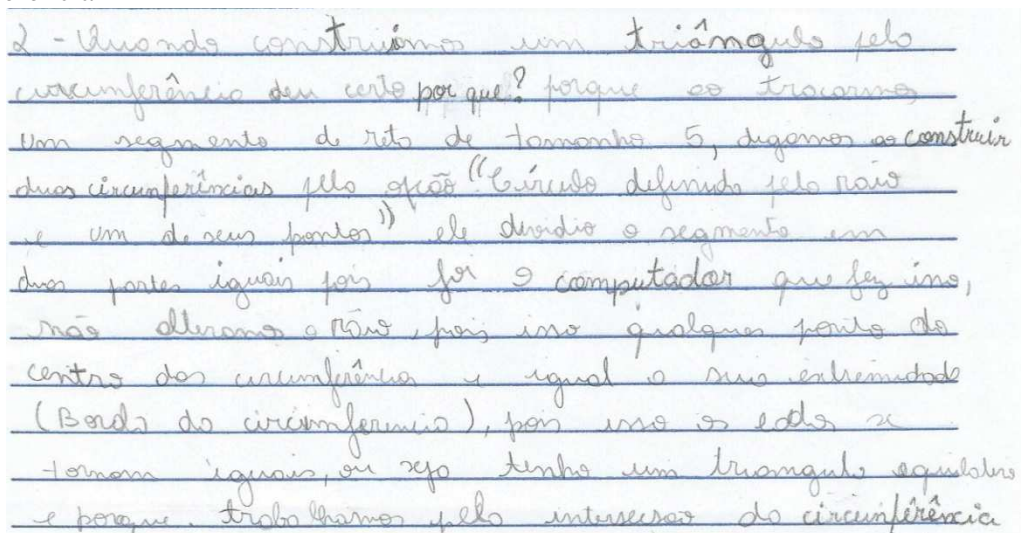 2 - Quando construimos um triângulo pela
circunferência deu certo por que? porque ao traçarmos
um segmento de reta de tamanho 5, digamos ao construir
duas circunferências pela opção "Círculo definido pelo raio
e um de seus pontos" ele dividio o segmento em
duas partes iguais pois foi o computador que fez isso,
não alteramos o raio, pois isso qualquer ponto do
centro das circunferência e igual a sua extremidade
(Borda da circunferencia), por isso os lados se
tornam iguais, ou seja tenho um triangulo equilatero
e porque trabalhamos pela intersersão da circunfêrência